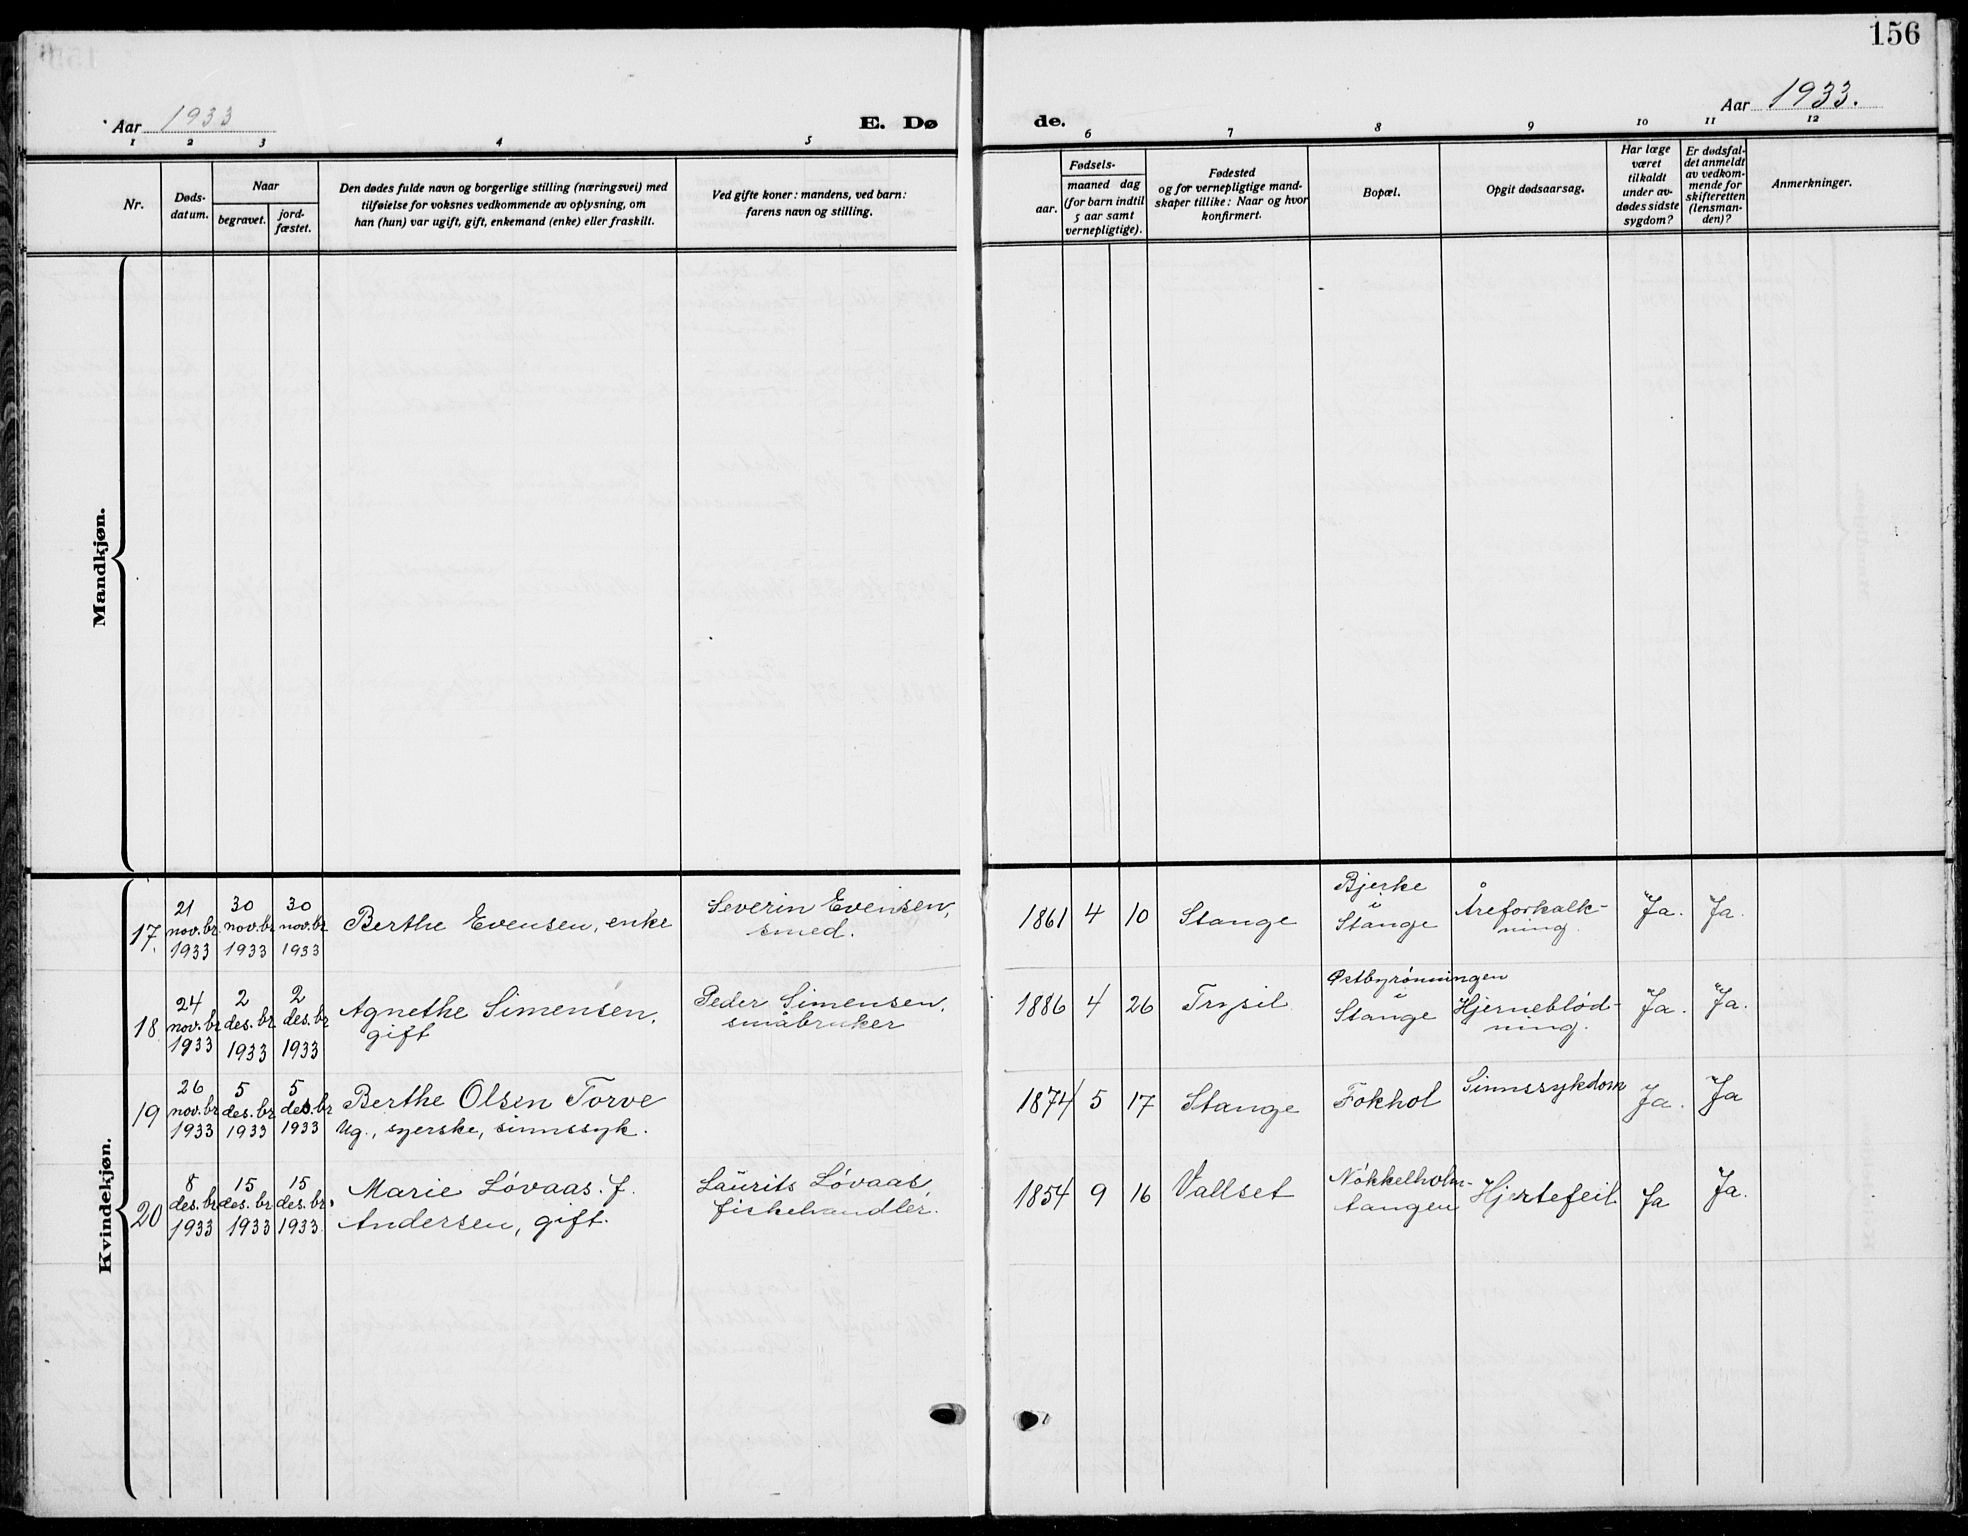 156
Aar 1933
E. Dø
de.
Aar 1933.
1 2 3 4 5 6 7 8 9 10 11 12
Nr.
Døds-
datum.
Naar
begravet.
jord-
fæstet.
Den dødes fulde navn og borgerlige stilling (næringsvei) med
tilføielse for voksnes vedkommende av oplysning, om
han (hun) var ugift, gift, enkemand (enke) eller fraskilt.
Ved gifte koner: mandens, ved barn:
farens navn og stilling.
Fødsels-
aar.
maaned dag
(for barn indtil
5 aar samt
vernepligtige).
Fødested
og for vernepligtige mand-
skaper tillike: Naar og hvor
konfirmert.
Bopæl.
Opgit dødsaarsag.
Har læge
været
tilkaldt
under av-
dødes sidste
sygdom?
Er dødsfal-
det anmeldt
av vedkom-
mende for
skifteretten
(lensman-
den)?
Anmerkninger.
Mandkjøn.
Kvindekjøn.
17.
21
nov.br.
1933
30
nov.br
1933
30
nov.br
1933
Berthe Evensen, enke
Severin Evensen,
smed.
1861 4 10
Stange
Bjerke
i
Stange
Åreforkalk-
ning.
Ja.
Ja.
18
24
nov.br
1933
2
des.br
1933
2
des.br
1933
Agnethe Simensen,
gift
Peder Simensen,
småbruker
1886 4 26
Trysil
Østbyrønningen
i
Stange
Hjerneblød-
ning.
Ja.
Ja.
19
26
nov.br
1933
5
des.br
1933
5
des.br
1933
Berthe Olsen Torve
Ug., syerske, sinnssyk.
1874 5 17
Stange
Fokhol
Sinnssykdom
Ja.
Ja
20
8
des.br
1933
15
des.br
1933
15
des.br.
1933
Marie Løvaas. f.
Andersen, gift.
Laurits Løvaas,
fiskehandler.
1854 9 16
Vallset
Nøkkelholm-
tangen
Hjertefeil
Ja
Ja.